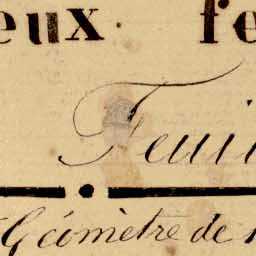 eux fe
Feuil
Géomètre de